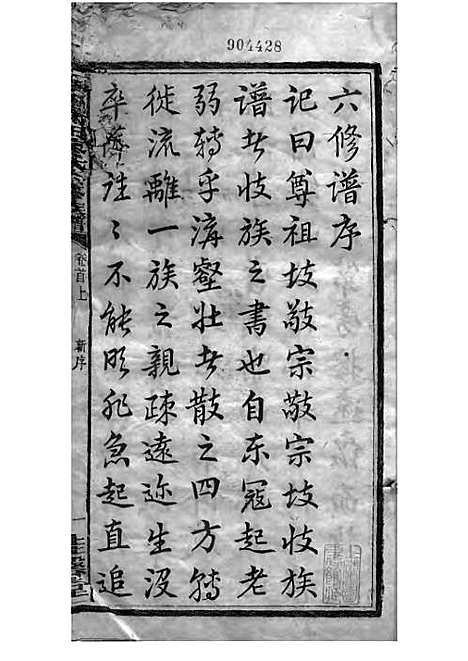 904428
六修譜序
記曰尊祖故敬宗敬宗故收族
譜者收族之書也自東寇起老
弱轉乎溝壑壯者散之四方轉
徙流離一族之親疎遠迩生沒
卒葬往〻不能明非急起直追
卷首上
新序
一